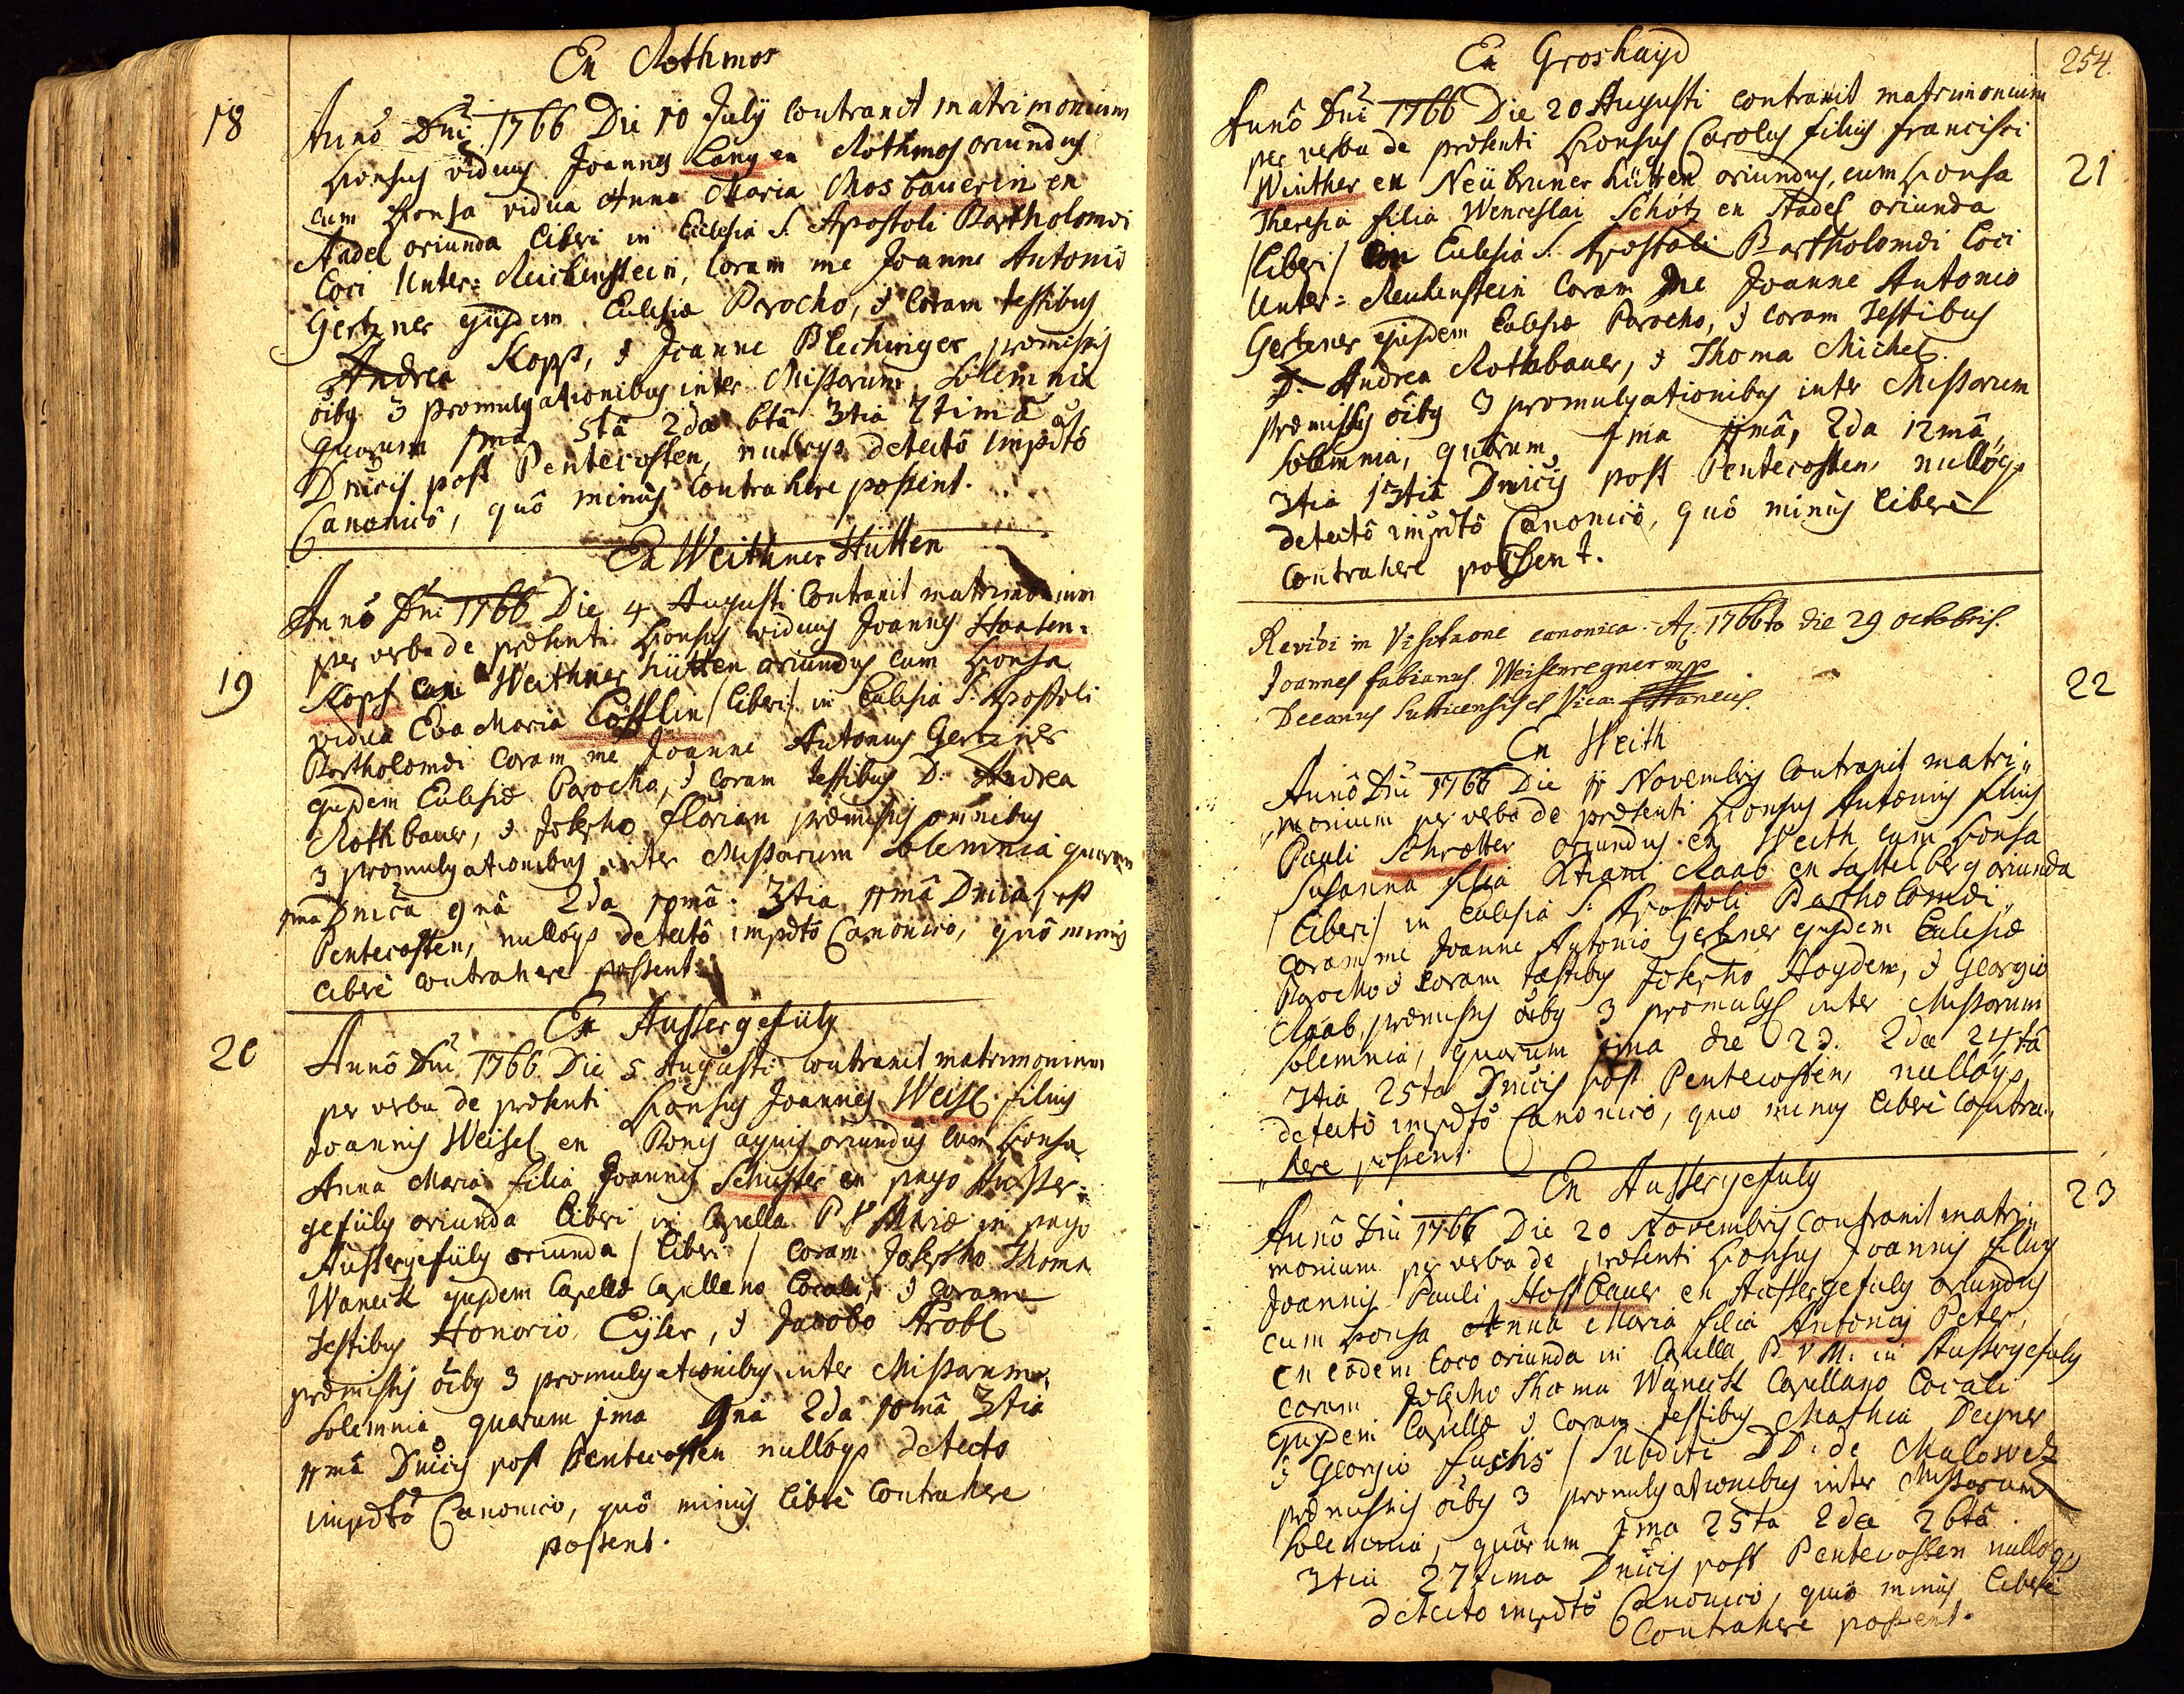 Ex Rothmos
18
Anno Dni 1766 Die 10 July contraxit matrimonium
sponsus viduus Joannes Lang ex Rothmos oriundus
cum sponsa vidua Anna Maria Mosbauerin ex
Stadel oriunda liberi in Ecclesia S: Apostoli Bartholomæi
loci Unter-Reichenstein, coram me Joanne Antonio
Gertzner ejusdem Ecclesiæ Parocho, & coram testibus
Andrea Kopp, & Joanne Plechinger præmissis
oibg 3 promulgationibus inter Missarum solemnia
quarum 1ma 5tâ 2da 6tâ 3tia 7timâ
Dnicis post Pentecosten, nulloqs detectô impdtô
Canonicô, quô minus contrahere possent.
Ex Weithner Hütten
19
Anno Dni 1766 Die 4 Augusti contraxit matrimonium
per verba de præsenti sponsus viduus Joannes Haasen-
Kopf Weithner Hütten oriundus cum sponsa
vidua Eva Maria Löfflin / liberi / in Ecclesia S: Apostoli
Bartholomæi coram me Joanne Antonius Gertzner
ejusdem Ecclesiæ Parocho, & coram testibus D: Andrea
Rothbauer, & Josepho Florian præmissis omnibus
3 promulgationibus inter Missarum solemnia quarum
1ma Dnica 9nâ 2da 10mâ 3tia 11mâ Dnica post
Pentecosten, nulloqs detectô impdtô Canonico, quô minus
liberè contrahere possent.
Ex Aussergefüly
20
Annô Dni 1766 Die 5 Augusti contraxit matrimonium
per verba de præsenti sponsus Joannes Weisl filius
Joannis Weisel ex Bonis aquis oriundus cum sponsa
Anna Maria filia Joannis Schuster ex pago Ausser-
gefüly oriunda liberi in Capella B V Mariæ in pago
Aussergefüly oriunda / liberi / coram Josepho Thoma
Waneck ejusdem Capellæ Capellano Locali, & coram
testibus Honorio Eyser, & Jacobo Strobl
præmissis oibg 3 promulgationibus inter Missarum
solemnia quarum 1ma 9nâ 2da 10mâ 3tia
11mâ Dnicis post Pentecosten nulloqs detecto
impdtô Canonico, quô minus liberè contrahere
possent.
254.
Ex Groshayd
Annô Dni 1766 Die 20 Augusti contraxit matrimonium
per verba de præsenti sponsus Carolus filius Francisci
21
Winther ex Neübruner Hütten oriundus, cum sponsa
Theresia filia Wenceslai Schotz ex Stadel oriunda
/ liberi / Ecclesia S: Apostoli Bartholomæi loci
Unter-Reichenstein coram me Joanne Antonio
Gertzner ejusdem Ecclesiæ Parocho, & coram testibus
D. Andrea Rothbauer, & Thoma Michel.
præmissis oibg 3 promulgationibus inter Missarum
solemnia, quarum 1ma 11mâ, 2da 12mâ,,
3tia 13tiâ Dnicis post Pentecosten, nulloqs
detectô impdtô Canonicô, quô minus liberè
contrahere possent.
Revidi in Visitaone canonica A: 1766to die 29 octobris.
Joannes Fabianus Weissenregner mpp
22
Decanus Sutticensis et Vica:
Ex Weith
Annô Dni 1766 Die 11 Novembris contraxit matri,,
,,monium per verba de præsenti sponsus Antonius filius
Pauli Schrotter oriundus ex Weith cum sponsa
Susanna filia Xtiani Raab ex Sattelberg oriunda
/ liberi / in Ecclesia S: Apostoli Bartholomæi,,
coram me Joanne Antonio Gertzner ejusdem Ecclesiæ
Parocho & coram testibus Josepho Haydem, & Georgio
Raab, præmissis oibg 3 promulg inter Missarum
solemnia, quarum 1ma die 23. 2da 24tâ
3tia 25ta Dnicis post Pentecosten, nulloqs
detectô impdtô Canonicô, quo minus liberè contra,,
,,here possent.
Ex Aussergefuly
23
Annô Dni 1766 Die 20 Novembris contraxit matri,,
monium per verba de præsenti sponsus Joannes filius
Joannis Pauli Hoffbauer ex Aussergefuly oriundus
cum sponsa Anna Maria filia Antonii Peter,
ex eôdem loco oriunda in Capella B V M: in Aussergefuly
coram Josepho Thoma Waneck Capellano Locali
ejusdem Capellæ & coram testibus Mathia Degner
& Georgio Fuchs / Subditi DD: de Malowetz
præmissis oibg 3 promulgationibus inter Missarum
solemnia, quarum 1ma 25ta 2da 26tâ
3tia 27tima Dnicis post Pentecosten nulloqs
detecto impdtô Canonico, quô minus liberè
contrahere possent.